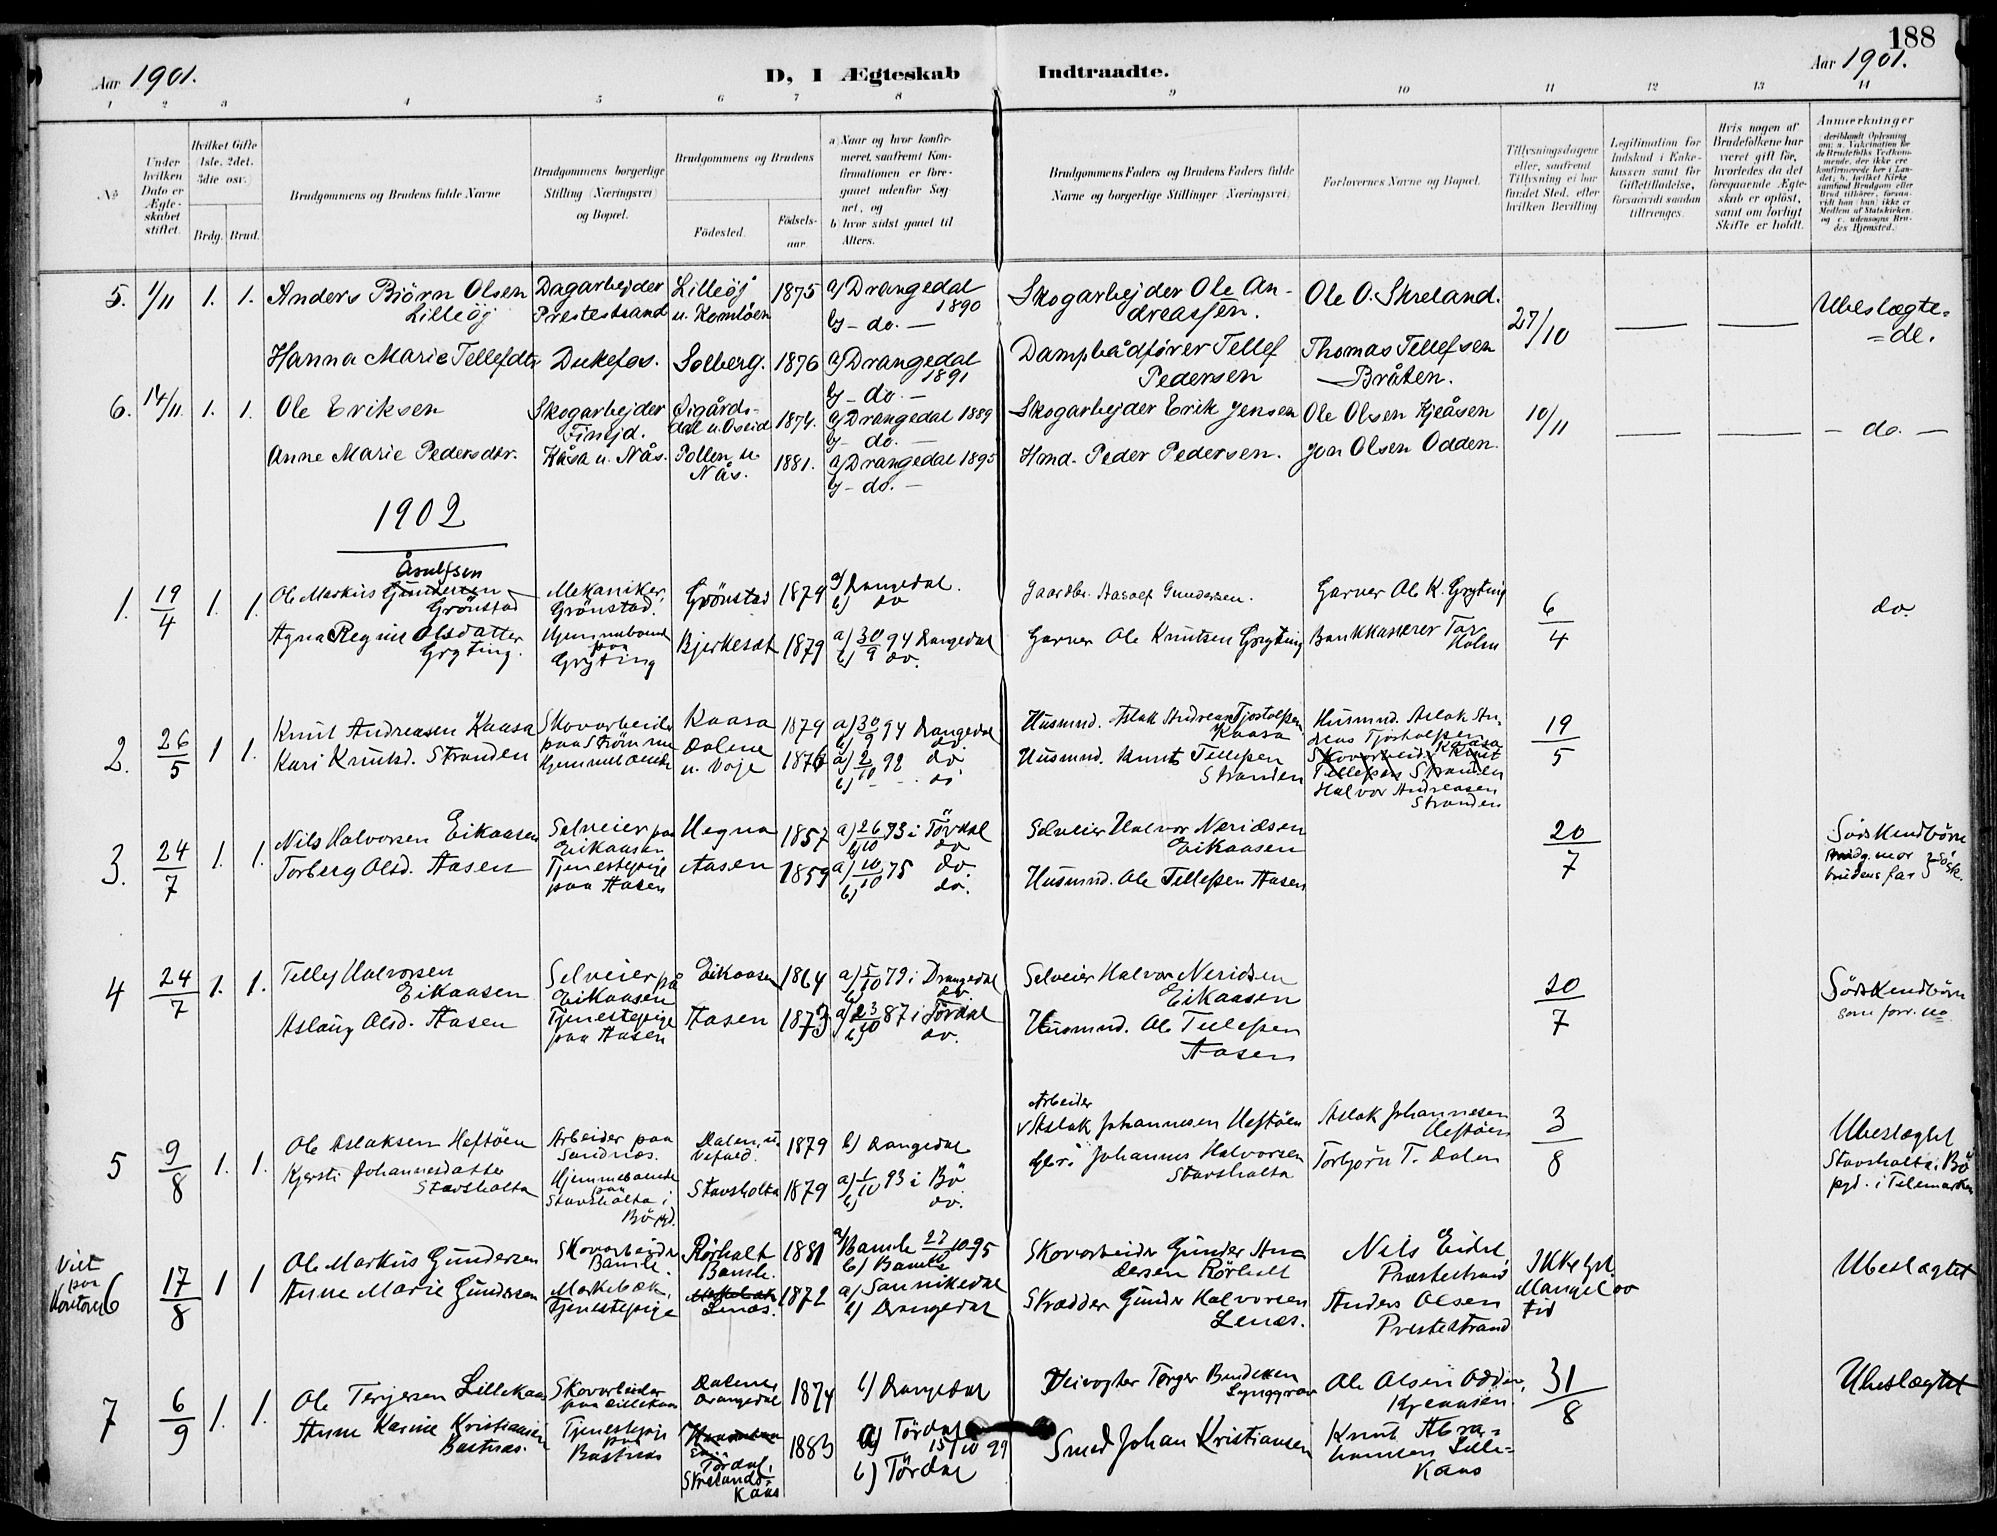 188
Aar 1901.
D, I Ægteskab Indtraadte.
Aar 1901.
1 2 3 4 5 6 7 8 9 10 11 12 13 14
No
Under hvilken Dato er Ægteskabet stiftet.
Hvilket Gifte (1ste. 2det. 3die osv.)
Brdg. Brud.
Brudgommens og Brudens fulde Navne
Brudgommens borgerlige Stilling (Næringsvei) og Bopæl.
Brudgommens og Brudens
Födested.
Födselsaar
a) Naar og hvor konfirmeret, saafremt Konfirmationen er foregaaet udenfor Sognet, og
b) hvor sidst gaaet til Alters.
Brudgommens Faders og Brudens Faders fulde Navne og borgerlige Stillinger (Næringsvei)
Forlovernes Navne og Bopæl.
Tillysningsdagene eller, saafremt Tillysning ei har fundet Sted, efter hvilken Bevilling
Legitimation for Indskud i Enkekassen samt for Giftetilladelse, forsaavidt saadan tiltrænges.
Hvis nogen af Brudefolkene har været gift för, hvorledes da det foregaaende Ægteskab er oplöst, samt om lovligt Skifte er holdt.
Anmærkninger
5. 1/11 1. 1. Anders Björn Olsen Lilleöj Dagarbejder Prestestrand Lilleöj u. Komlöen 1875 a) Drangedal 1890 b) – do. – Skogarbejder Ole Andreassen. Ole O. Skreland. 27/10 — — Ubeslægtede.
Hanna Marie Tellefsdtr Dukefos. Solberg. 1876 a) Drangedal 1891 b) – do. – Dampbådförer Tellef Pedersen Thomas Tellefsen Bråten.
6. 14/11. 1. 1. Ole Eriksen Skogarbejder 1874. a) Drangedal 1889 b) – do. – Skogarbejder Erik Jensen Ole Olsen Kjeåsen 10/11 — — – do. –
Anne Marie Pedersdtr. Kåsa u. Nås. Pollen u. Nås. 1881. a) Drangedal 1895 b) – do. – Hmd. Peder Pedersen. Jon Olsen Odden.
1902
1. 19/4 1. 1. Ole Markus Gundersen Åsulfsen Grönstad Mekaniker, Grönstad. Grönstad 1879 a) Drangedal. b) do Gaardbr. Aasolf Gundersen. Garver Ole K. Gryting 6/4 do
Agna Regine Olsdatter Gryting. Hjemmeboende paa Gryting Bjerkeset 1879 a) 30/9 94 Drangedal b) do. Garver Ole Knutsen Gryting Bankkasserer Tor Holm
2. 26/5 1 1. Knut Andreasen Kaasa Skovarbeider paa Strömme Kaasa 1879 a) 30/9 94 Drangedal b) do. Husmnd. Aslak Andreas Tjostolfsen Kaasa Husmnd. Aslak Andreas Tjostolfsen Kaasa 19/5
Kari Knutsd. Stranden Hjemmeboende Dalene u. Voje 1876 a) 2/10 92 do b) – – do Husmnd. Knut Tellefsen Stranden Skovarbeider Knut Tellefsen Stranden
Halvor Andreasen Stranden
3. 24/7 1. 1. Nils Halvorsen Eikaasen Selveier paa Eikaasen Hegna 1857 a) 26/10 73 i Tördal b) do Selveier Halvor Neridsen Eikaasen 20/7 Södskendbörn brudg. mor brudens far } Sösk.
Torberg Olsd. Aasen Tjenestepige paa Aasen Aasen 1859 a) 10/10 75 do. b) do. Husmnd. Ole Tellefsen Aasen
4 24/7 1. 1. Tellef Halvorsen Eikaasen Selveier på Eikaasen Eikaasen 1864 a) 5/10 79 i Drangedal b) do Selveier Halvor Neridsen Eikaasen 20/7 Södskendbörn som forr. no
Aslaug Olsd. Aasen Tjenestepige paa Aasen Aasen 1873 a) 23/10 87 i Tördal b) do. Husmnd. Ole Tellefsen Aasen
5 9/8 1. 1. Ole Aslaksen Heftöen Arbeider paa Sandnæs. Dalen, u. Vefald. 1879 b) Drangedal Arbeider Aslak Johannesen Heftöen Aslak Johannesen Heftöen 3/8 Ubeslægtet
Kjersti Johannesdatter Stavsholta Hjemmeboende paa Stavsholta i Bö pgd. Stavsholta 1879 a) 1/10 93 i Bö b) do. Gbr. Johannes Halvorsen Stavsholta Torbjörn T. Dalen Stavsholta i Bö pgd. i Telemarken
Viet paa Kontoret 6 17/8 1 1 Ole Markus Gundersen Skovarbeider Bamle. Rörholt Bamle. 1881 a) Bamle 27/10 95 b) Bamle Skovarbeider Gunder Andersen Rörholt Nils Eidet Præstestrand Ikke lyst Mangel av tid Ubeslægtet
Anne Marie Gundersen Tjenestepige Lenæs. 1872 a) Sannikedal b) Drangedal Skrædder Gunder Halvorsen Lenæs. Anders Olsen Prestestrand
7 6/9 1. 1. Ole Terjersen Lillekaas Skovarbeider paa Lillekaas Dalene, Drangedal 1874 b) Drangedal Veivogter Terger Ole Olsen Odden, Kjeaasen. 31/8 Ubeslægtet
Anne Karine Kristiansen Bostræs. Tjenestepige paa Bostræs Tördal, Skrelands Kaas 1883 a) Tördal 15/10 99 b) Tördal Smed Johan Kristiansen Knut Abrahamsen Lillekaas